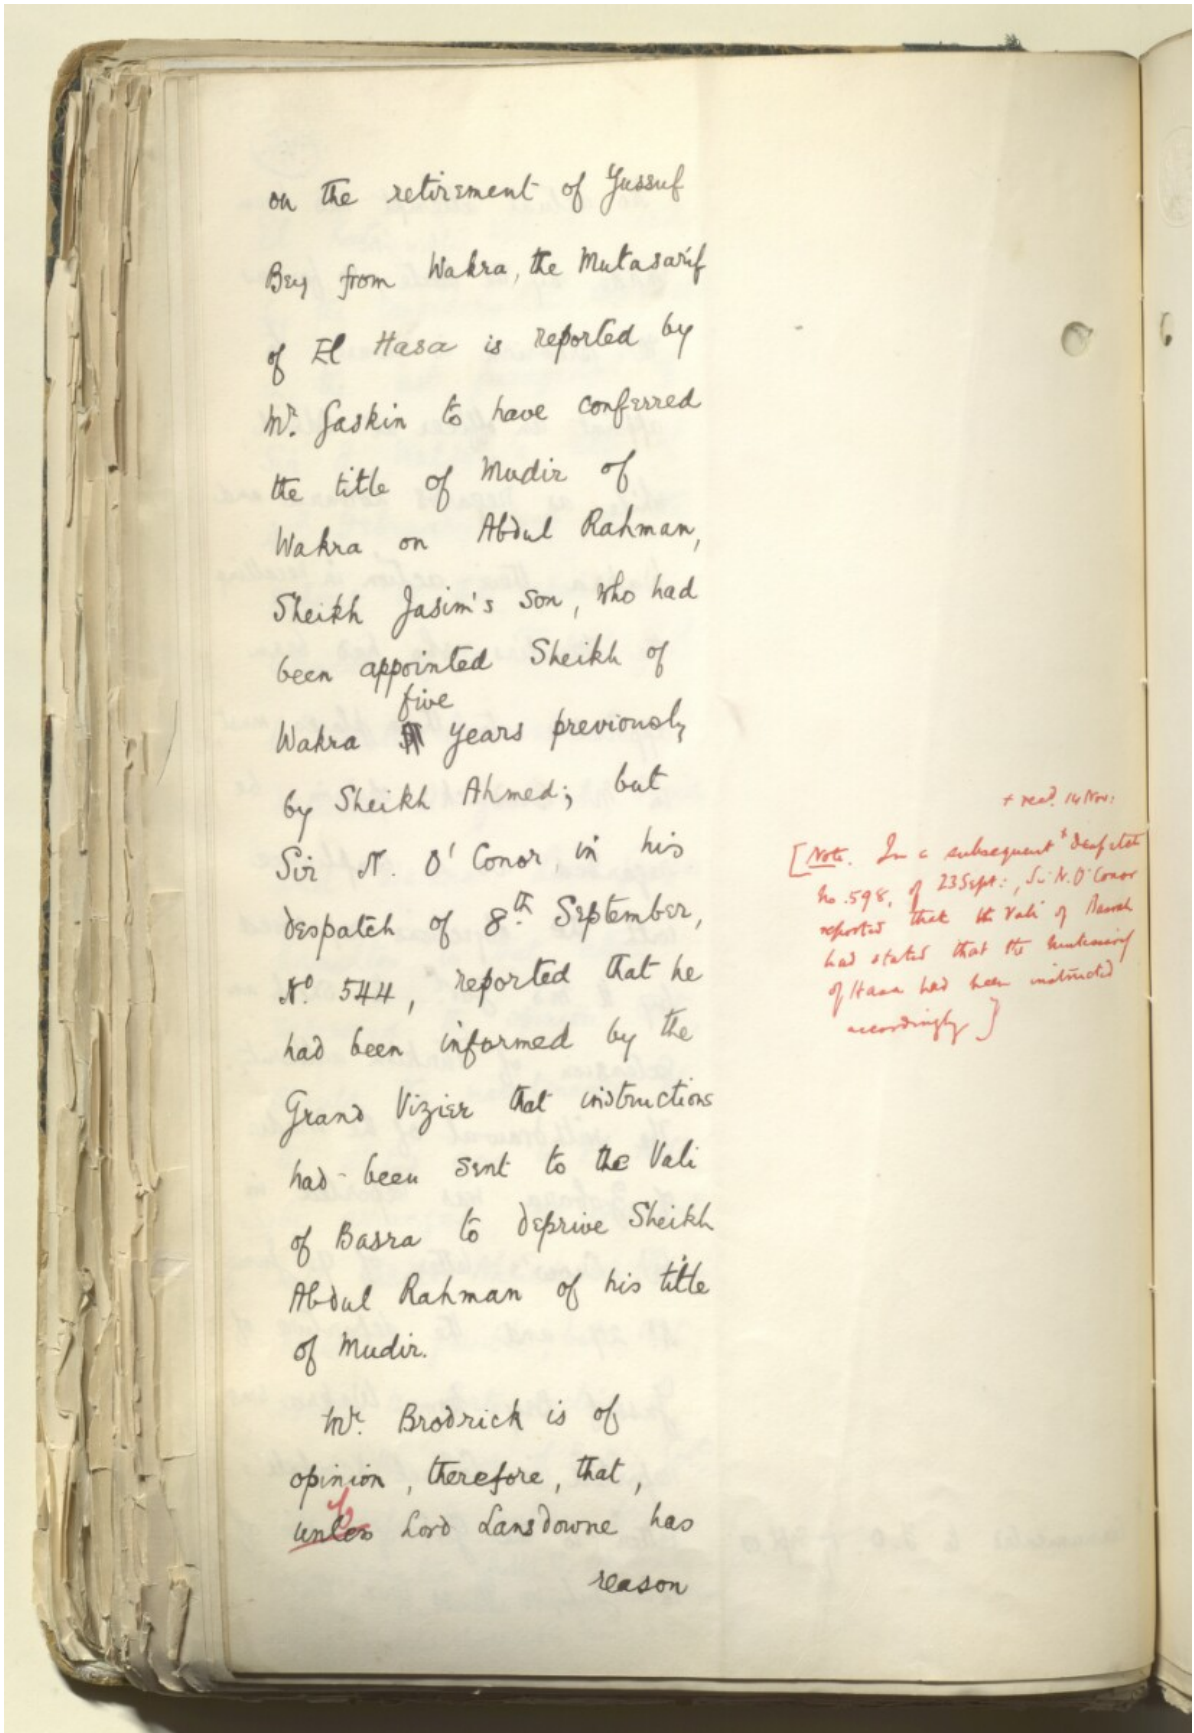 on the retirement of Yussuf
Bey from Wakra, the Mutasarif
of El Hasa is reported by
Mr. Gaskin to have conferred
the title of Mudir of
Wakra on Abdul Rahman,
Sheikh Jasim's son, who had
been appointed Sheikh of
five
Wakra years previously
by Sheikh Ahmed; but
Sir N. O'Conor, in his
despatch of 8th September,
No. 544, reported that he
had been informed by the
Grand Vizier that instructions
had been sent to the Vali
of Basra to deprive Sheikh
Abdul Rahman of his title
of Mudir.
Mr. Brodrick is of
opinion, therefore, that,
unless Lord Lansdowne has
reason
+ recd. 14 Nov:
[Note. In a subsequent + despatch
No. 598, of 23 Sept:, Sir N. O'Conor
reported that the Vali of Basrah
had stated that the Mutessarif
of Hasa had been instructed
accordingly]